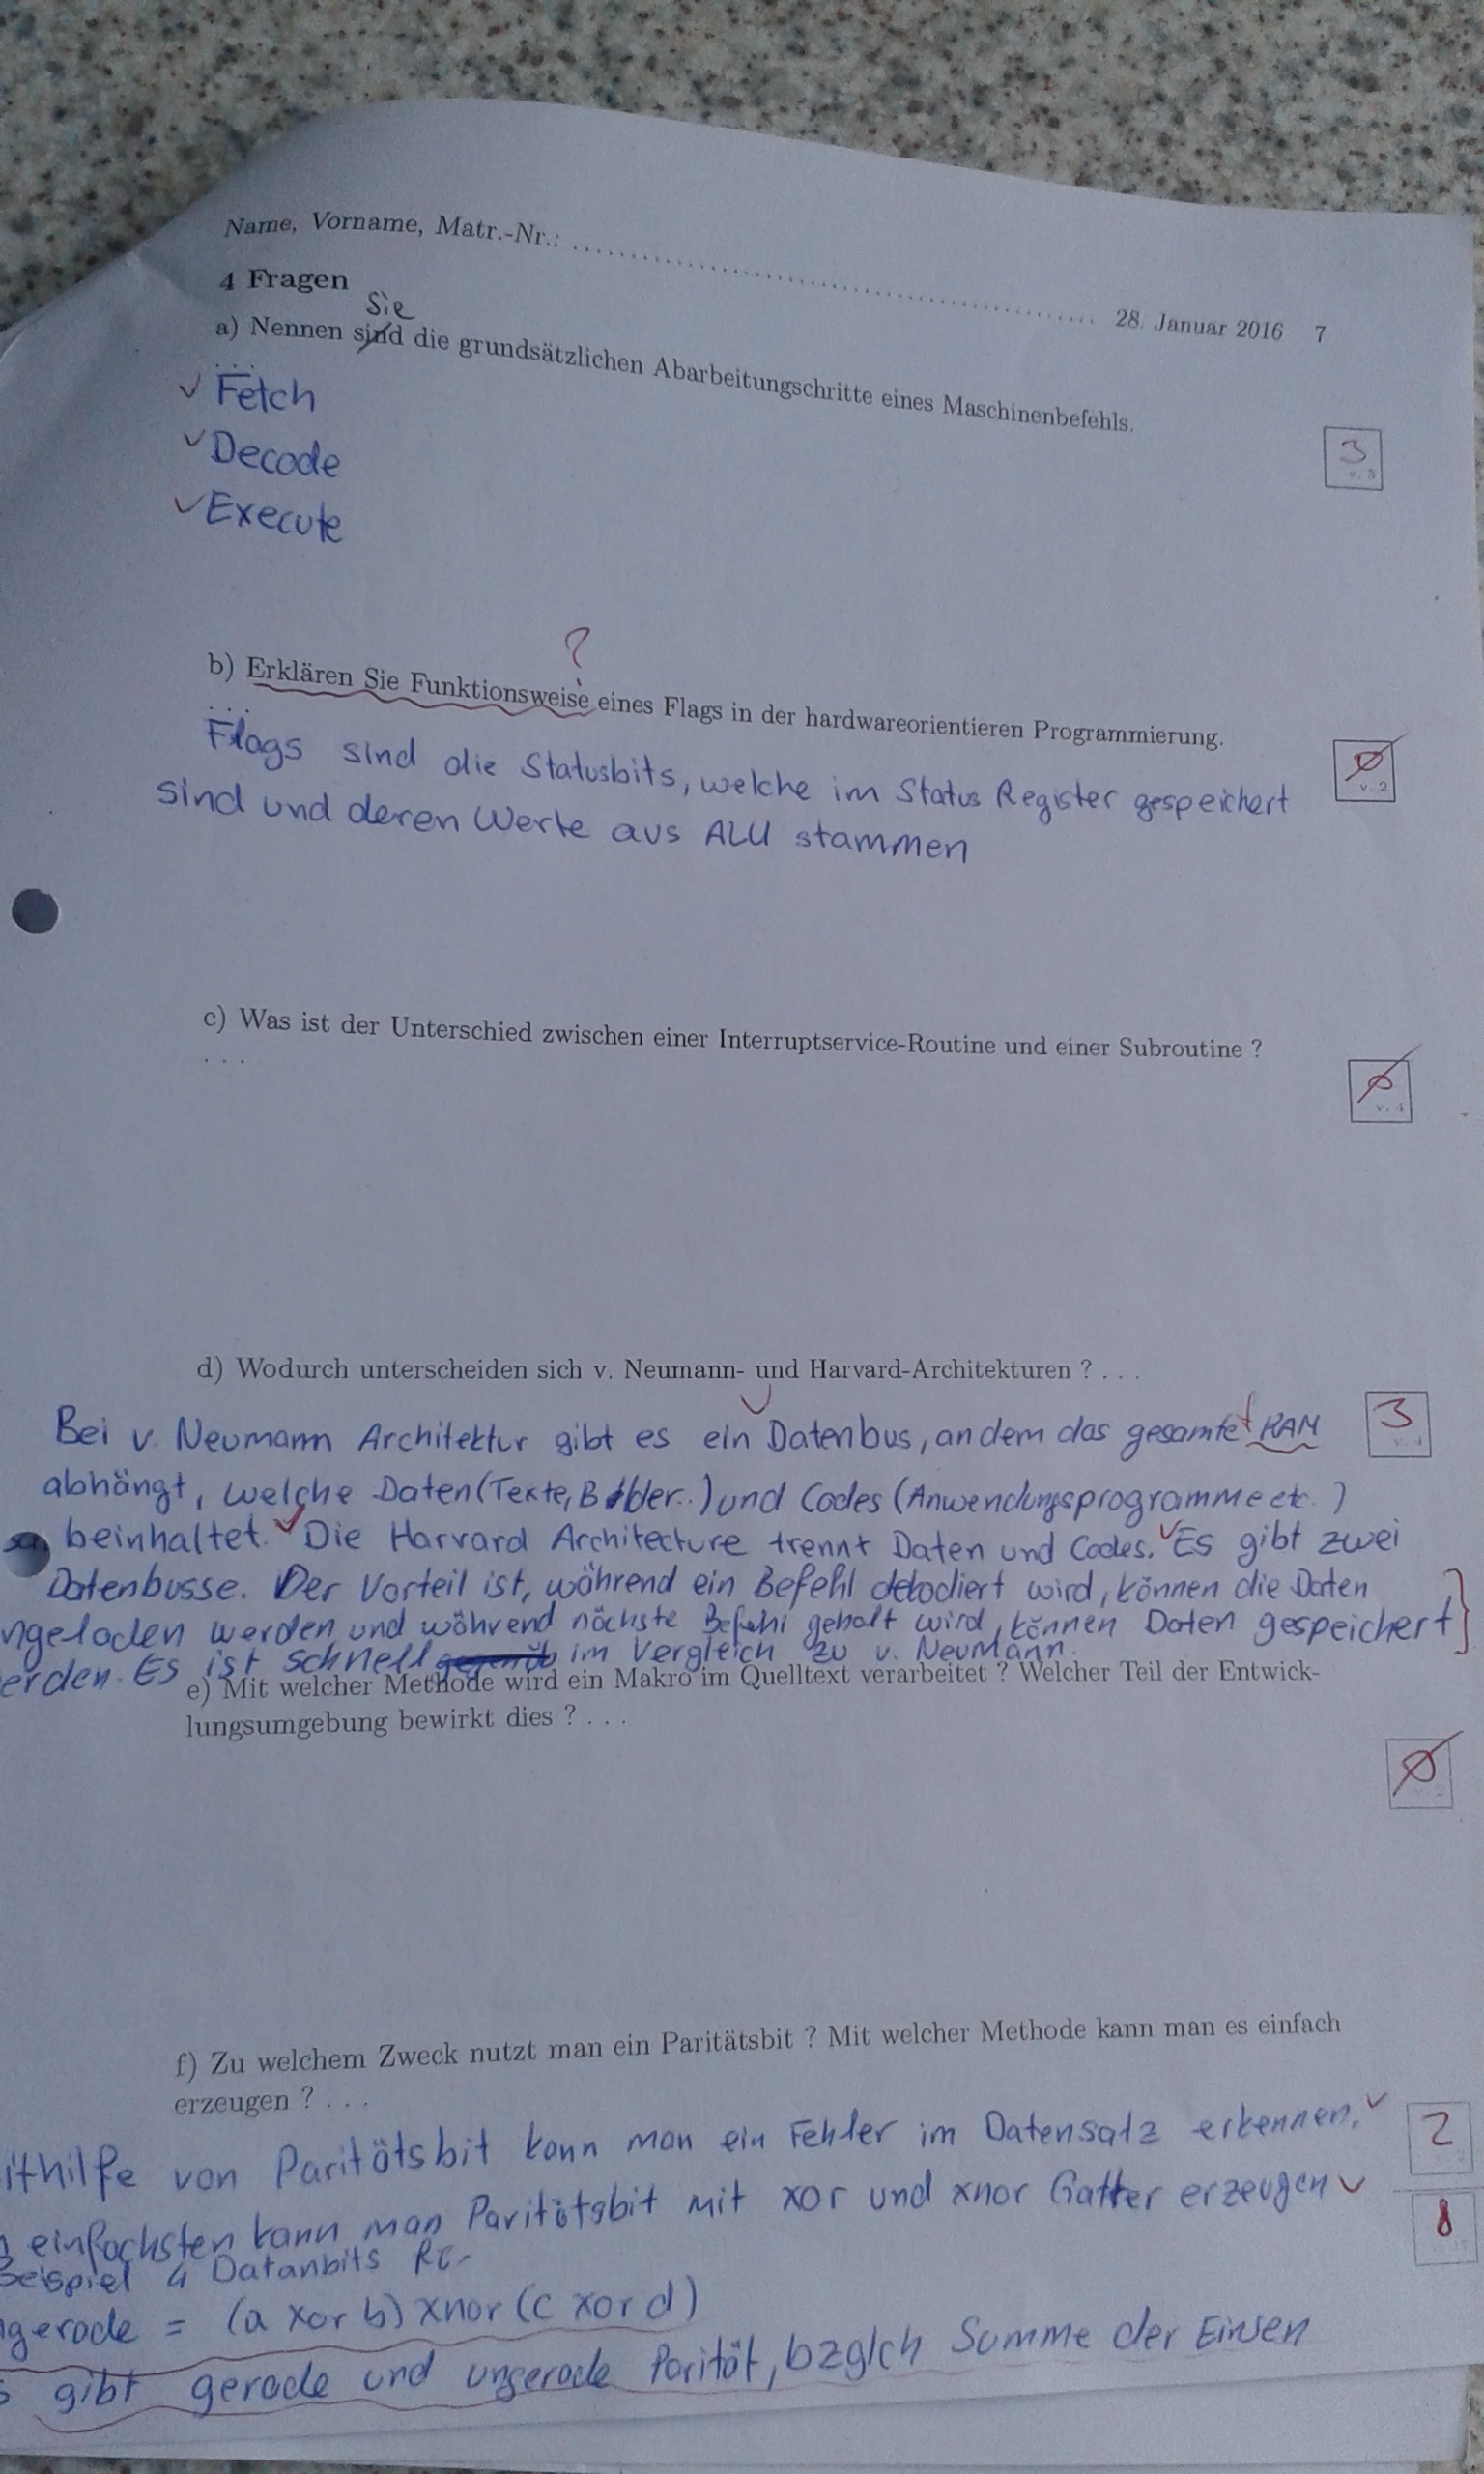 Name, Vorname, Matr.-Nr.: ........................................ 28. Januar 2016 7
4 Fragen
Sie
a) Nennen sind die grundsätzlichen Abarbeitungschritte eines Maschinenbefehls.
...
✓ Fetch
3
v. 3
✓ Decode
✓ Execute
?
b) Erklären Sie Funktionsweise eines Flags in der hardwareorientieren Programmierung.
...
Flags sind die Statusbits, welche im Status Register gespeichert
Ø
v. 2
sind und deren Werte aus ALU stammen
c) Was ist der Unterschied zwischen einer Interruptservice-Routine und einer Subroutine ?
...
Ø
v. 4
d) Wodurch unterscheiden sich v. Neumann- und Harvard-Architekturen ? ...
Bei v. Neumann Architektur gibt es ein Datenbus, an dem das gesamte RAM
3
v. 4
abhängt, welche Daten (Texte, Bilder..) und Codes (Anwendungsprogramme etc.)
beinhaltet. ✓ Die Harvard Architecture trennt Daten und Codes. ✓ Es gibt zwei
Datenbusse. Der Vorteil ist, während ein Befehl dekodiert wird, können die Daten
ngeladen werden und während nächste Befehl geholt wird, können Daten gespeichert
erden. Es ist schnell im Vergleich zu v. Neumann.
e) Mit welcher Methode wird ein Makro im Quelltext verarbeitet ? Welcher Teil der Entwick-
lungsumgebung bewirkt dies ? ...
Ø
f) Zu welchem Zweck nutzt man ein Paritätsbit ? Mit welcher Methode kann man es einfach
erzeugen ? ...
ithilfe von Paritätsbit kann man ein Fehler im Datensatz erkennen. ✓
2
einfachsten kann man Paritätsbit mit xor und xnor Gatter erzeugen ✓
8
Beispiel 4 Datanbits
gerade = (a xor b) xnor (c xor d)
gibt gerade und ungerade Parität, bzglch Summe der Einsen